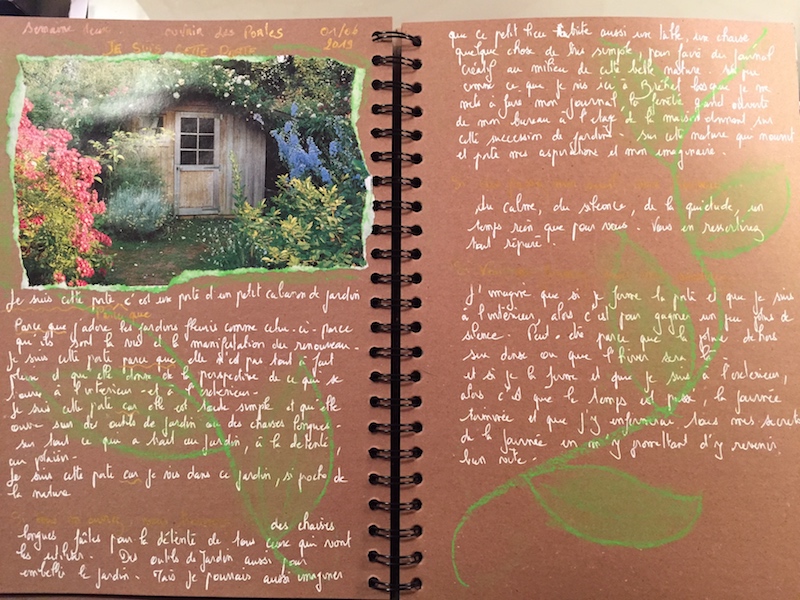 Semaine deux ouvrir des Portes 01/06
2019
JE SUIS CETTE PORTE
Je suis cette porte c'est un porte d'un petit cabanon de jardin
Parce que
Parce que j'adore les jardins fleuris comme celui-ci - parce
que ils sont la vie et la manifestation du renouveau -
Je suis cette porte parce que elle n'est pas tout à fait
pleine et que elle donne de la perspective de ce qui se
trouve à l'intérieur - et à l'extérieur -
Je suis cette porte car elle est toute simple et que elle
ouvre sur des outils de jardin ou des chaises longues -
sur tout ce qui a trait au jardin, à la détente,
au plaisir -
Je suis cette porte car je vis dans ce jardin, si proche de
la nature
des chaises
longues faites pour la détente de tous ceux qui vont
les utiliser - Des outils de Jardin aussi pour
embellir le jardin - Mais je pourrais aussi imaginer
que ce petit lieu abrite aussi un table, un chaise
quelque chose de très simple, pour faire du journal
créatif au milieu de cette belle nature. Un peu
comme ce que je vis ici à Bréhel lorsque je me
mets à faire mon journal la fenêtre grand ouverte
de mon bureau à l'étage de la maison donnant sur
cette succession de jardins - sur cette nature qui nourrit
et porte mes aspirations et mon imaginaire.
Du calme, du silence, de la quiétude, un
temps rien que pour vous. Vous en ressortirez
tout réparé.
J'imagine que si je ferme la porte et que je suis
à l'intérieur, alors c'est pour gagner un peu plus de
silence. Peut-être parce que la pluie dehors
sera dense ou que l'hiver sera là
et si je la ferme et que je suis à l'extérieur,
alors c'est que le temps est passé, la journée
terminée et que j'y enfermerai tous mes secrets
de la journée en m'y promettant d'y revenir.
bien vite -